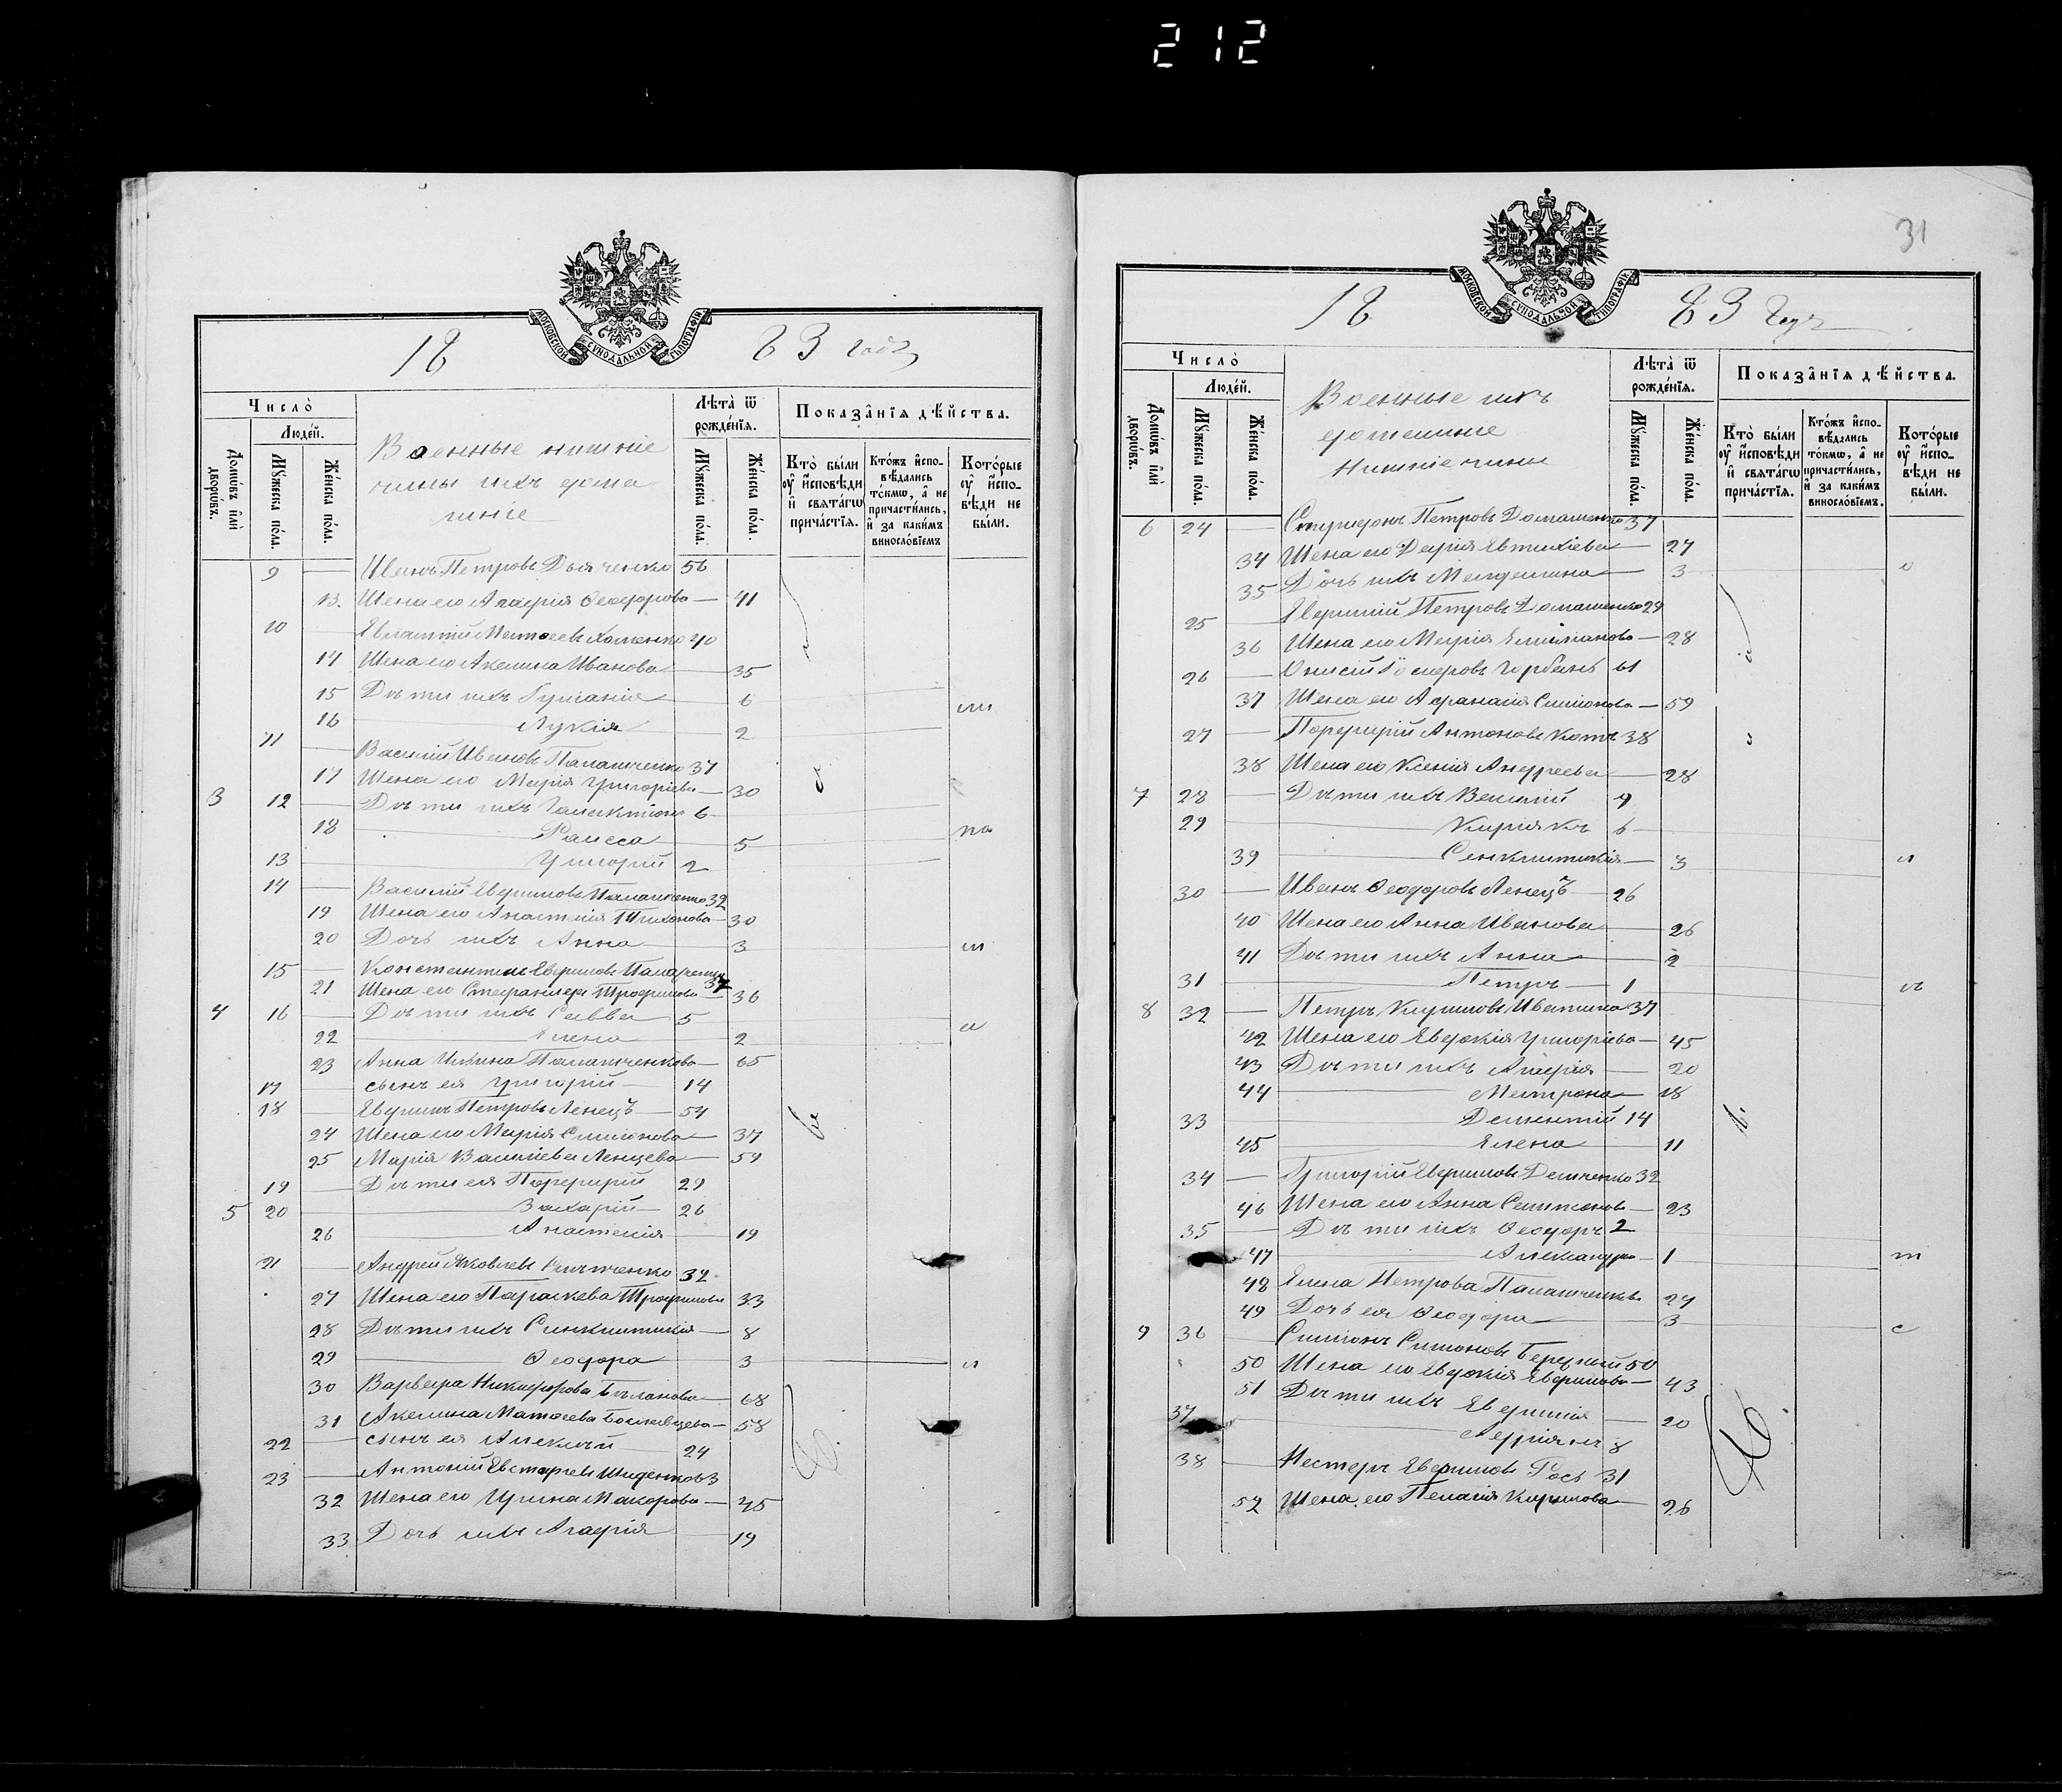 212
МОСКОВСКОЙ СѴНОДАЛЬНОЙ ТѴПОГРАФІИ
18 83 года
Число̀
Людє́й.
Домѡ́въ и҆лѝ дворѡ́въ.
Мꙋ́жеска по́ла.
Же́нска по́ла.
Военные нижніе
чины ихъ дома
шніе
Лѣта̀ ѿ рожде́нїѧ.
Мꙋ́жеска по́ла.
Же́нска по́ла.
Показа̑нїѧ дѣ́йства.
Кто̀ бы́ли ᲂу҆ и҆сповѣ́ди и҆ свѧта́гѡ прича́стїѧ.
Кто́жъ и҆сповѣ́дались то́кмѡ, а҆ не причасти́лись, и҆ за каки́мъ винословїемъ
Кото́рые ᲂу҆ и҆сповѣ́ди не бы́ли.
9 Иванъ Петровъ Дьяченко 56
13. Жена его Агафія Ѳеодорова 41
10 Евлампій Матѳеевъ Хоменко 40
14 Жена его Акелина Иванова 35
15 Дѣти ихъ Гуліанія 6
16 Лукія 2
11 Василій Ивановъ Палатченко 37
17 Жена его Марія Григоріева 30
3 12 Дѣти ихъ Галактіонъ 6
18 Раисса 5
13 Григорій 2
14 Василій Евфимовъ Палатченко 32
19 Жена его Анастасія Тихонова 30
20 Дочь ихъ Анна 3
15 Константинъ Евфимовъ 37
21 Жена его Стефанида Трофимова 36
4 16 Дѣти ихъ Савва 5
22 Елена 2
23 Анна Ильина Палатченкова 65
17 сынъ ея Григорій 14
18 Евфимъ Петровъ Ленецъ 54
24 Жена его Марія Симонова 37
25 Марія Василіева Ленцева 54
19 Дѣти ея Порфирій 29
5 20 Захарій 26
26 Анастасія 19
21 Андрей Яковлевъ 32
27 Жена его Параскева Трофимова 33
28 Дѣти ихъ Синклитикія 8
29 Ѳеодора 3
30 Варвара Никифорова Биланова 68
31 Акелина Матѳеева 58
22 сынъ ея Алексій 24
23 Антоній Евстафіевъ
32 Жена его Ирина Макарова 45
33 Дочь ихъ Агафія 19
31
МОСКОВСКОЙ СѴНОДАЛЬНОЙ ТѴПОГРАФІИ
18 83 годъ
Число̀
Людє́й.
Домѡ́въ и҆лѝ дворѡ́въ.
Мꙋ́жеска по́ла.
Же́нска по́ла.
Военные ихъ
домашніе
нижніе чины
Лѣта̀ ѿ рожде́нїѧ.
Мꙋ́жеска по́ла.
Же́нска по́ла.
Показа̑нїѧ дѣ́йства.
Кто̀ бы́ли ᲂу҆ и҆сповѣ́ди и҆ свѧта́гѡ прича́стїѧ.
Кто́жъ и҆сповѣ́дались то́кмѡ, а҆ не причасти́лись, и҆ за каки́мъ винословїемъ.
Кото́рые ᲂу҆ и҆сповѣ́ди не бы́ли.
6 24 Петровъ Домашенко 37
34 Жена его Дарія Евтихіева 27
35 Дочь ихъ Магдалина 3
25 Евфимій Петровъ Домашенко 29
36 Жена его Марія Емиліанова 28
26 Онисій Горбань 61
37 Жена его Афанасія Симонова 59
27 Порфирій Антоновъ Котъ 38
38 Жена его Ксенія Андреева 28
7 28 Дѣти ихъ Василій 9
29 Киріякъ 6
39 Сенклитикія 3
30 Иванъ Ѳеодоровъ Ленецъ 26
40 Жена его Анна Иванова 26
41 Дѣти ихъ Анна 2
31 Петръ 1
8 32 Петръ Кириловъ 37
42 Жена его Евдокія Григоріева 45
43 Дѣти ихъ Агафія 20
44 Матрона 18
33 Дементій 14
45 Елена 11
34 Григорій Евфимовъ Демченко 32
46 Жена его Анна Симонова 23
35 Дѣти ихъ Ѳеодоръ 2
47 Александра 1
48 Елена Петрова Палатченкова 24
49 Дочь ея Ѳеодора 3
9 36 Симонъ Симоновъ Бережный 50
50 Жена его Евдокія Евфимова 43
51 Дѣти ихъ Евфимія 20
37 Адріанъ 8
38 Несторъ Евфимовъ Рось 31
52 Жена его Пелагія Кирилова 26